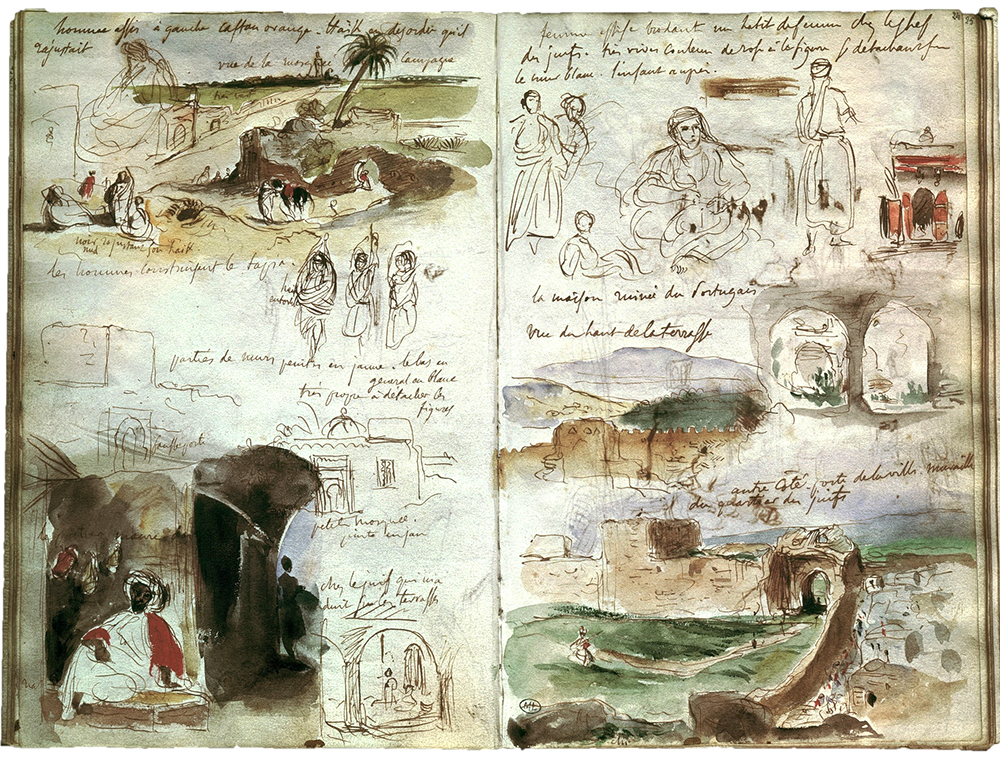 homme assis à gauche caftan orange. Haïk en desordre qu'il
rajustait
vue de la mosquée
Campagne
noir rajustant son haik
nud
les hommes construisent le tapia.
parties de murs peintes en jaune. le bas en
général en blanc
très propre à détacher les
figures
petite mosquée.
chez le juif qui m'a
conduit sur les terrasses
femme assise brodant un habit de femme chez le chef
des juifs. très vives couleur de rose à la figure se détachant sur
le mur blanc. l'enfant auprès.
la maison ruinée du Portugais
vue du haut de la terrasse
autre côté. porte de la ville. muraille
du quartier des juifs